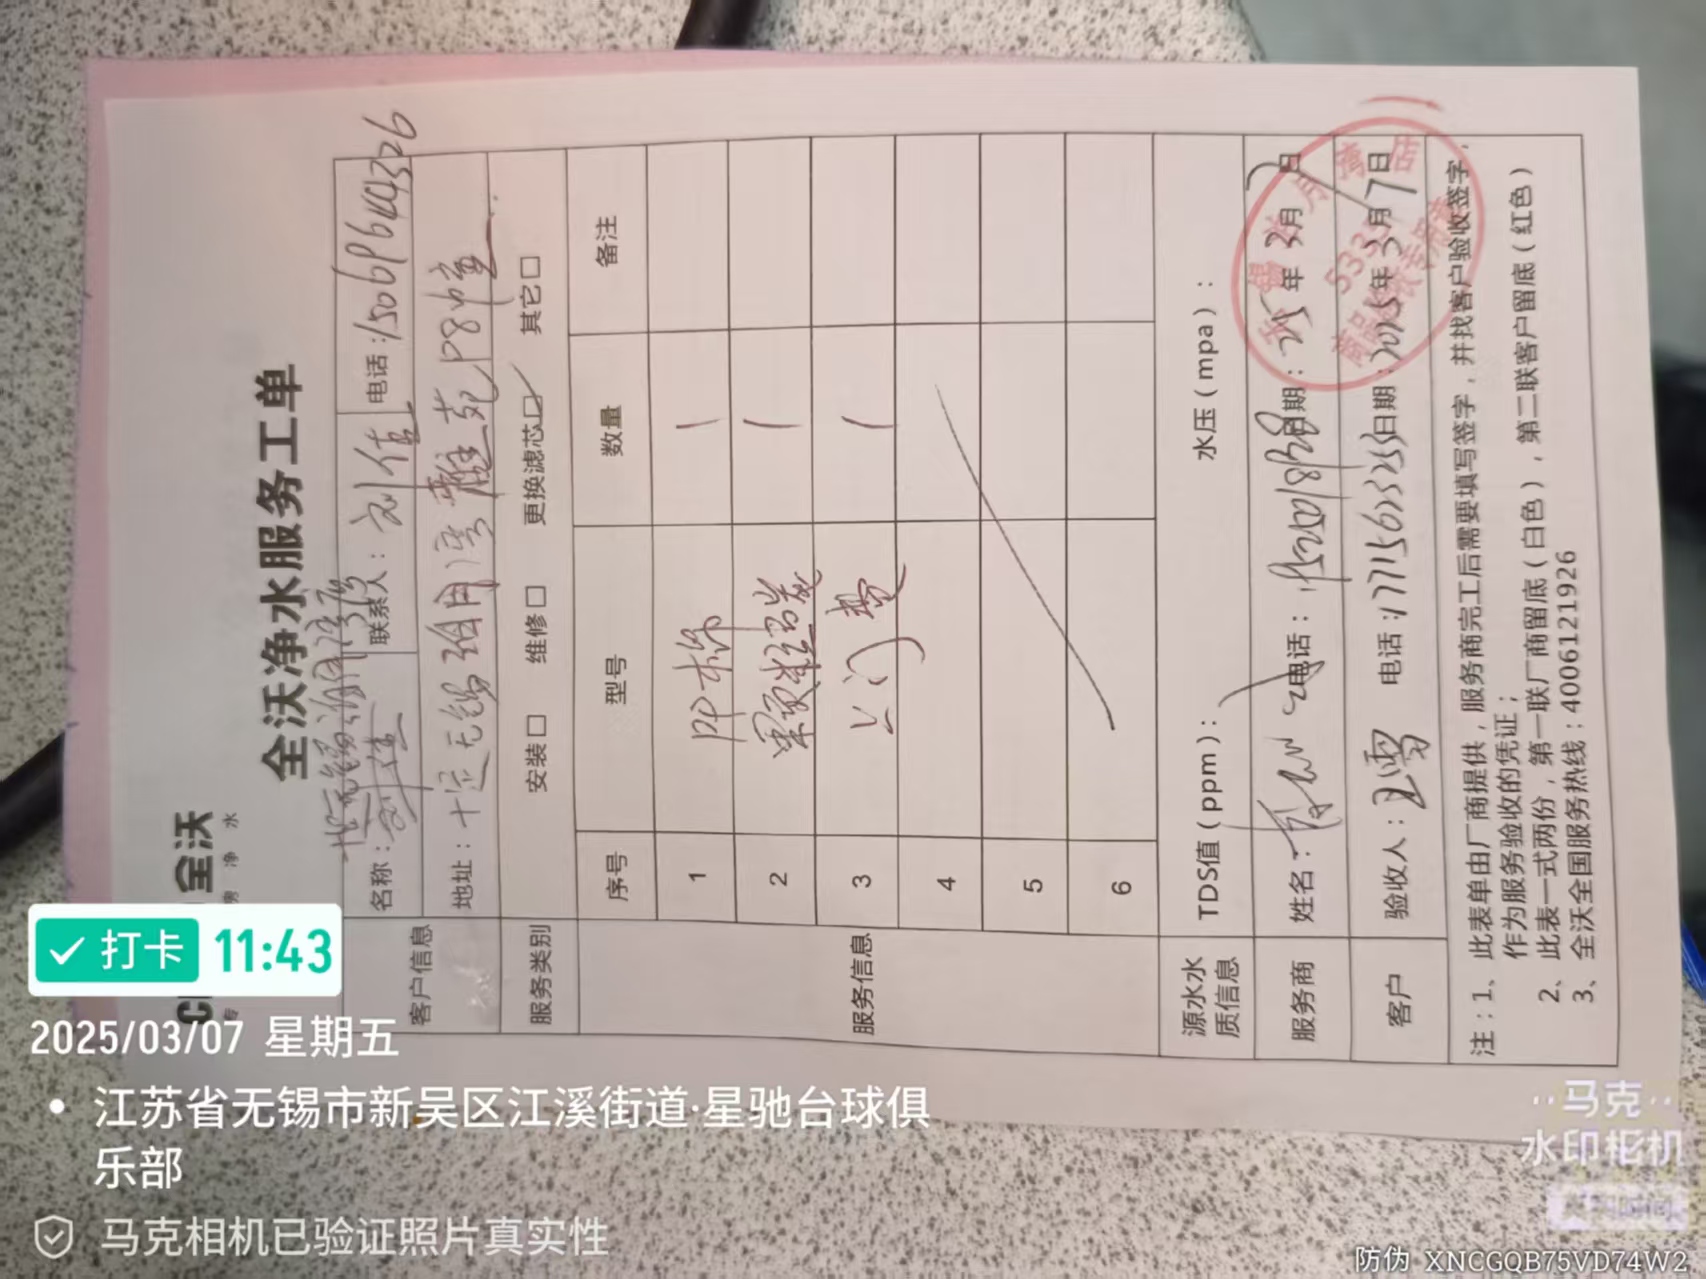 全沃
净 水
全沃净水服务工单
客户信息
名称：
联系人：
电话：15069644326
地址：
服务类别
安装□ 维修□ 更换滤芯□ 其它□
服务信息
序号 型号 数量 备注
1 PP棉 1
2 1
3 上门费 1
4
5
6
源水水质信息
TDS值（ppm）： 水压（mpa）：
服务商 姓名： 电话： 日期：25年3月7日
客户 验收人：王雪 电话：17715635253 日期：2025年3月7日
注：1、此表单由厂商提供，服务商完工后需要填写签字，并找客户验收签字，
作为服务验收的凭证；
2、此表一式两份，第一联厂商留底（白色），第二联客户留底（红色）
3、全沃全国服务热线：4006121926
打卡 11:43
2025/03/07 星期五
江苏省无锡市新吴区江溪街道·星驰台球俱
乐部
马克相机已验证照片真实性
马克
水印相机
防伪 XNCGQB75VD74W2